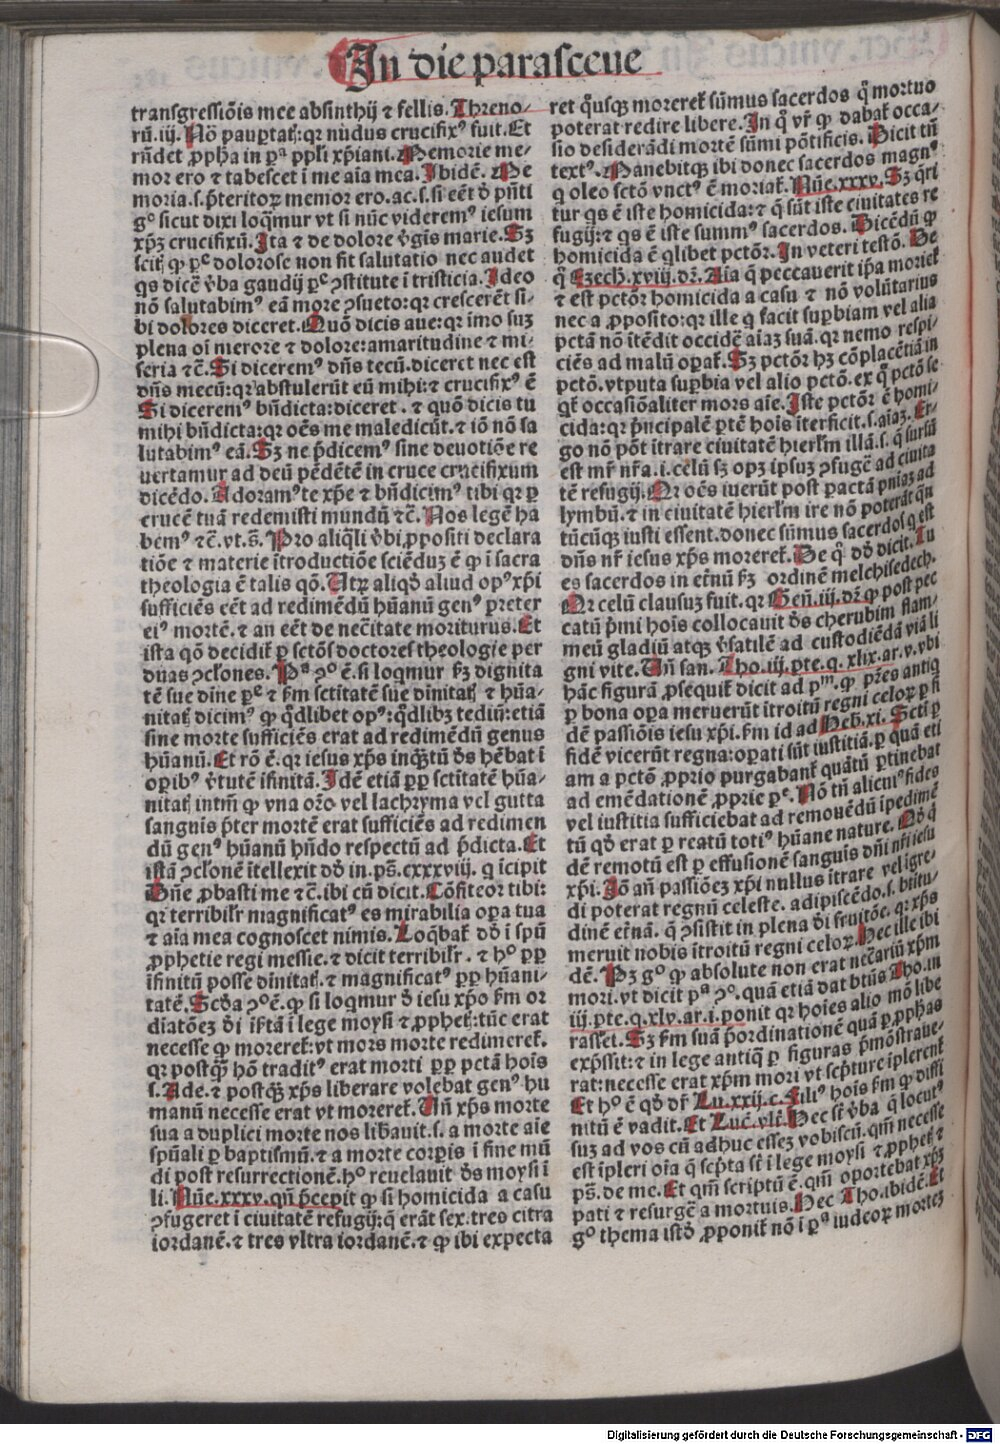 In die parasceue
transgressiōis mee absinthij ⁊ fellis. Threno-
rū. iij. Nō paupertatꝫ: qꝛ nudus crucifixꝰ fuit. Et
rn̄det ꝓph̄a in pᵃ ppl̓i xp̄iani. Memorie me-
mor ero ⁊ tabescet ī me aīa mea. Ibidē. Me
moria. s. p̄teritoꝝ memor ero. ac. s. si eēt ď pn̄ti
gͦ sicut dixi loq̄mur vt si nūc videremꝰ iesum
xp̄ꝫ crucifixū. Ita ⁊ de dolore v̓gīs marie. Sꝫ
scitꝫ ꝙ ꝑᵉ dolorose non fit salutatio nec audet
qs dicē v̓ba gaudij ꝑᵉ ꝯstitute ī tristicia. Ideo
nō salutabimꝰ eā more ꝯsueto: qꝛ crescerēt si-
bi dolores diceret. Quō dicis aue: qꝛ īmo suꝫ
plena oī merore ⁊ dolore: amaritudine ⁊ mi-
seria ⁊c̄. Si dicererꝰ dn̄s tecū. diceret nec est
dn̄s mecū: qꝛ abstulerūt eū mihi: ⁊ crucifixꝰ ē
Si diceremꝰ bn̄dicta: diceret. ⁊ quō dicis tu
mihi bn̄dicta: qꝛ oēs me maledicūt. ⁊ iō nō sa
lutabimꝰ eā. Sꝫ ne p̄dicemꝰ sine deuotiōe re
uertamur ad deū pēdētē in cruce crucifixum
dicēdo. Adoramꝰ te xp̄e ⁊ bn̄dicimꝰ tibi qꝛ ꝑ
crucē tuā redemisti mundū ⁊c̄. Nos legē ha
bemꝰ ⁊c̄. vt. s̄. Pro aliq̄li v̓bi ꝓpositi declara
tiōe ⁊ materie ītroductiōe sciēduꝫ ē ꝙ ī sacra
theologia ē talis qō. Utꝝ aliqd̓ aliud opꝰ xp̄i
sufficiēs eēt ad redimēdū hūanū genꝰ preter
eiꝰ mortē. ⁊ an eēt de nec̄itate moriturus. Et
ista qō decidit᷑ ꝑ sctōs doctores theologie per
duas ꝯclōnes. Pᵃ ꝯͦ ē. si loqmur ẜꝫ dignita
tē sue dīne ꝑᵉ ⁊ ẜm sctitatē sue dīnitatꝫ ⁊ hūa-
nitatꝫ dicimꝰ ꝙ qd̓libet opꝰ: qd̓libꝫ tediū: etiā
sine morte sufficiēs erat ad redimēdū genus
hūanū. Et rō ē. qꝛ iesus xp̄s inq̄ꝫtū ďs hēbat ī
oꝑibꝰ v̓tutē īfinitā. Idē etiā ꝓpꝉ sctitatē hūa-
nitatꝫ intm̄ ꝙ vna or̄o vel lachryma vel gutta
sanguis p̄ter mortē erat sufficiēs ad redimen
dū genꝰ hūanū hn̄do respectū ad p̄dicta. Et
istā ꝯclonē ītellexit dd̓ in. ps̄. cxxxviij. q īcipit
Dn̄e ꝓbasti me ⁊c̄. ibi cū dicit. Cōfiteor tibi:
qꝛ terribilr̄ magnificatꝰ es mirabilia oꝑa tua
⁊ aīa mea cognoscet nimis. Loq̄bat᷑ dd̓ ī spū
ꝓphetie regi messie. ⁊ dicit terribilr̄. ⁊ hͦ ꝓpꝉ
īfinitū posse dīnitatꝫ. ⁊ magnificatꝰ ꝓpꝉ hūani-
tatē. Scd̓a ꝯͦ ē. ꝙ si loqmur ď iesu xp̄o ẜm or
diatōeꝫ ďi ir̄tā ī lege moysi ⁊ ꝓphetꝫ: tūc erat
necesse ꝙ moreret᷑: vt mors morte redimeret᷑.
qꝛ postq̄ꝫ hō traditꝰ erat morti ꝓpꝉ pctā hoīs
s. Ade. ⁊ postq̄ꝫ xp̄s liberare volebat genꝰ hu
manū necesse erat vt moreret᷑. Un̄ xp̄s morte
sua a duplici morte nos lib̓auit. s. a morte aīe
spūali ꝑ baptismū. ⁊ a morte corꝑis ī fine mū
di post resurrectionē. hͦ reuelauit ďs moysi ī
li. Nūe. xxxv. qn̄ p̄cepit ꝙ si homicida a casu
ꝯfugeret ī ciuitatē refugij: q̄ erāt sex. tres citra
iordanē. ⁊ tres vltra iordanē. ⁊ ꝙ ibi expecta
ret qͦusqꝫ moreret᷑ sūmus sacerdos qͦ mortuo
poterat redire libere. In qͦ vr̄ ꝙ dabat᷑ occa-
sio desiderādi mortē sūmi pōtificis. Dicit tn̄
textꝰ. Manebitqꝫ ibi donec sacerdos magnꝰ
q oleo sctō vnctꝰ ē moriat᷑. Nūe. xxxv. Sꝫ qri
tur qs ē iste homicida: ⁊ q̄ sūt iste ciuitates re
fugij: ⁊ qs ē iste summꝰ sacerdos. Dicēdū ꝙ
homicida ē qlibet pctōr. In veteri testō. De
q̄ Ezech. xviij. dr̄. Aīa q̄ peccauerit ip̄a moriet᷑
⁊ est pctōr homicida a casu ⁊ nō volūtarius
nec a ꝓposito: qꝛ ille q facit suꝑbiam vel alia
pctā nō ītēdit occidē aīaꝫ suā. qꝛ nemo respi-
ciēs ad malū oꝑat᷑. Sꝫ pctōr hꝫ cōplacētiā in
pctō. vtputa suꝑbia vel alio pctō. ex qͦ pctō se
qt᷑ occasiōaliter mors aīe. Iste pctōr ē homi-
cida: qꝛ pn̓cipalē ꝑtē hoīs īterficit. s. aīaꝫ. Er-
go nō pōt ītrare ciuitatē hierl̄m illā. s. q̄ sursū
est mr̄ nr̄a. i. celū sꝫ opꝫ ipsuꝫ ꝯfugē ad ciuita
tē refugij. Qꝛ oēs iuerūt post ꝑactā pn̄iaꝫ ad
lymbū. ⁊ in ciuitatē hierl̄m ire nō poterāt qn̄
tūcūqꝫ iusti essent. donec sūmus sacerdos q est
dn̄s nr̄ iesus xp̄s moreret᷑. De qͦ dd̓ dicit. Tu
es sacerdos in et̓nū ẜꝫ ordinē melchisedech.
Qꝛ celū clausuꝫ fuit. qꝛ Gen̄. iij. dr̄. ꝙ post pec
catū p̄mi hoīs collocauit ďs cherubim flam-
meū gladiū atqꝫ v̓satilē ad custodiēdā viā li
gni vite. Un̄ san. Tho. iij. ꝑte. q. xlix. ar. v. vbi
hāc figurā ꝓsequit᷑ dicit ad pᵐ. ꝙ pr̄es antiq
ꝑ bona oꝑa meruerūt ītroitū regni celoꝝ ꝑ fi
dē passiōis iesu xp̄i. ẜm id ad Heb. xi. Scti ꝑ
fidē vicerūt regna: oꝑati sūt iustitiā. ꝑ quā eti
am a pctō ꝓprio purgabant᷑ quātū ꝑtinebat
ad emēdationē ꝓprie ꝑᵉ. Nō tn̄ alicuiꝰ fides
vel iustitia sufficiebat ad remouēdū īpedimē
tū qd̓ erat ꝑ reatū totiꝰ hūane nature. Qd̓ qͥ
dē remotū est ꝑ effusionē sanguis dn̄i nr̄i iesu
xp̄i. Iō an̄ passiōeꝫ xp̄i nullus ītrare vel īgre-
di poterat regnū celeste. adipiscēdo. s. btītu-
dinē et̓nā. q̄ ꝯsistit in plena ďi fruitōe. qꝛ xp̄s
meruit nobis ītroitū regni celoꝝ. Hec ille ibi
dē. Pꝫ gͦ ꝙ absolute non erat nec̄ariū xp̄m
mori. vt dicit pᵃ ꝯͦ. quā etiā dat btūs Tho. in
iij. ꝑte. q. xlv. ar. i. ponit qꝛ hoīes alio mō libe
rasset. Sꝫ ẜm suā p̄ordinationē quā ꝑ ꝓph̄as
exp̄ssit: ⁊ in lege antiq̄ ꝑ figuras p̄mōstraue-
rat: necesse erat xp̄m mori vt sc̄pture īplerent᷑
Et hͦ ē qd̓ dr̄ Lu. xxij. c. Filiꝰ hoīs ẜm ꝙ diffi
nitū ē vadit. Et Luc̄. vlt̓. Hec st̄ v̓ba q̄ locutꝰ
suꝫ ad vos cū adhuc esseꝫ vobiscū. qm̄ necesse
est īpleri oīa q̄ sc̄pta st̄ ī lege moysi ⁊ ꝓphetꝫ ⁊
ps̄. de me. Et qm̄ scriptū ē. qm̄ oportebat xp̄ꝫ
pati ⁊ resurgē a mortuis. Hec Tho. ibidē. Et
gͦ thema istd̓ ꝓponit᷑ nō ī ꝑᵃ iudeoꝝ morteꝫ
Digitalisierung gefördert durch die Deutsche Forschungsgemeinschaft - DFG